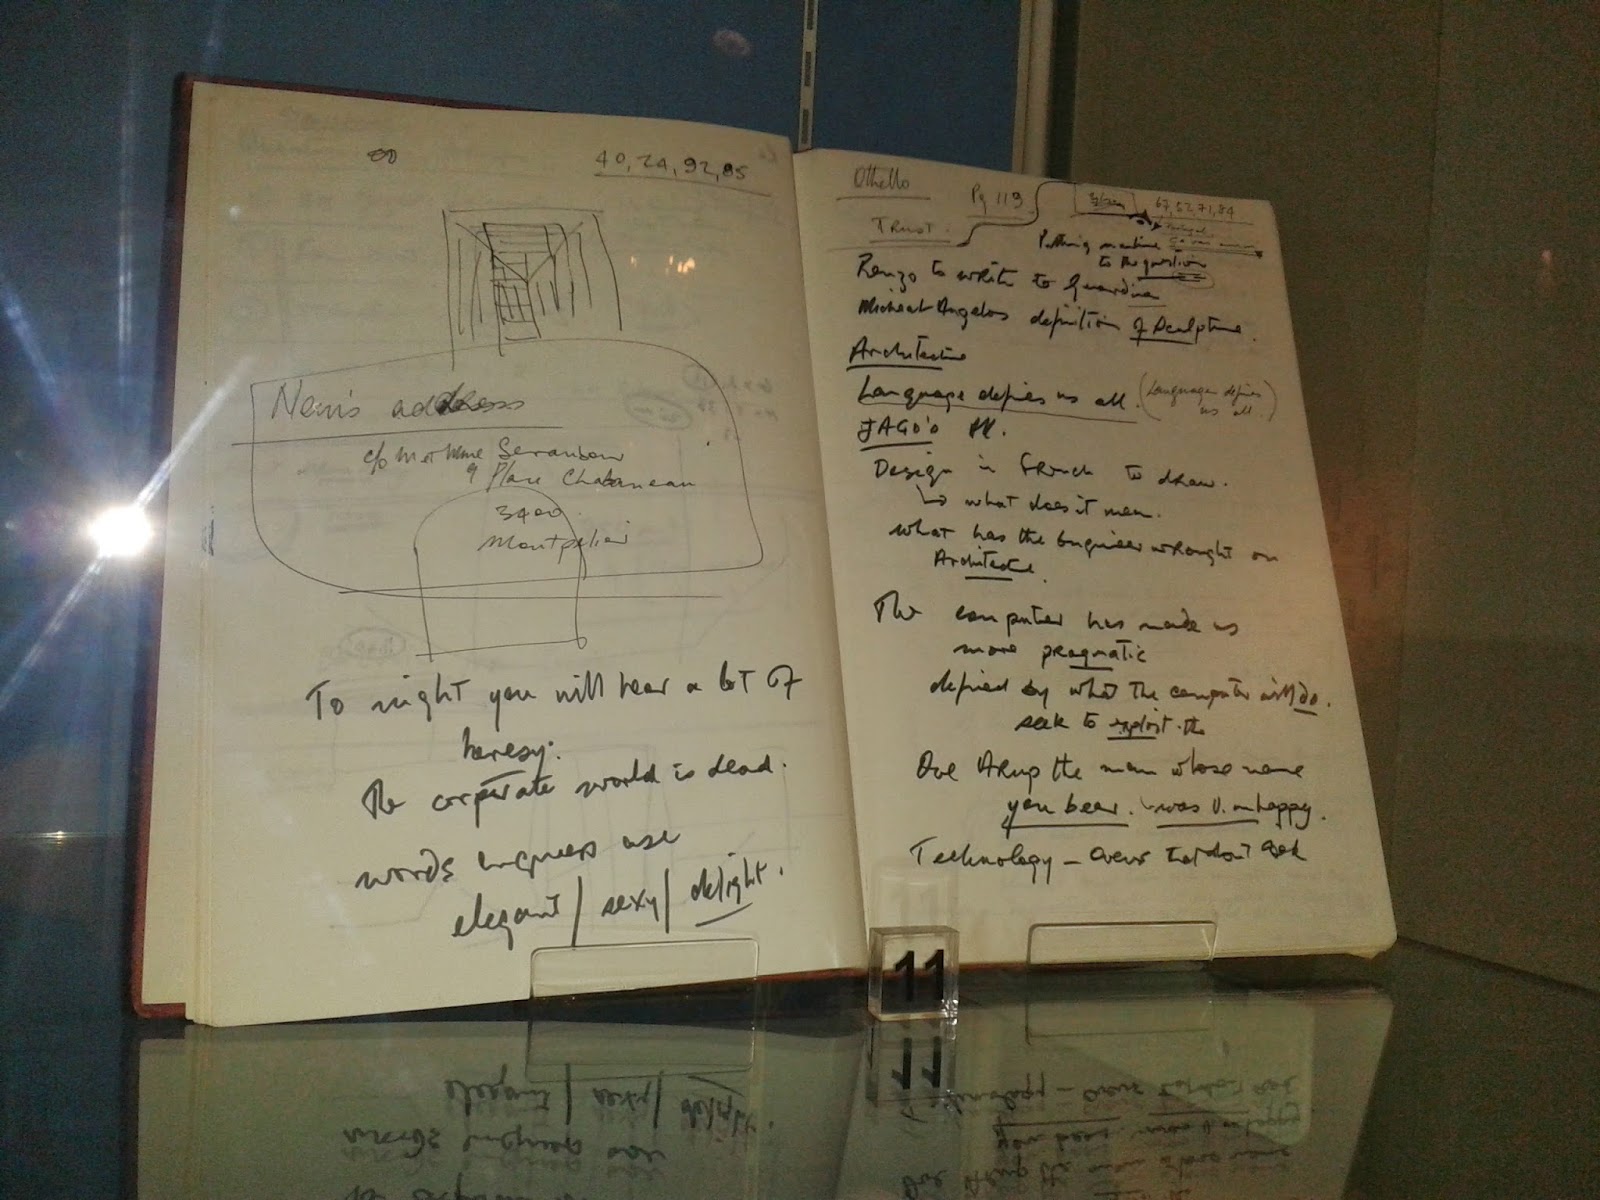 40, 24, 92, 85
Nem's address
c/o Madame
9 Place Chabaneau
3400
Montpelier
To night you will hear a lot of
heresy.
The corporate world is dead.
words engineers use
elegant / sexy / delight.
Othello
Pg 119
67, 52, 71, 84
TRUST.
Putting machine
to the question
Renzo to write to Guardian
Micheal Angelos definition of Sculpture.
Architecture
Language defies us all. (Language defies
us all.)
IAGO's
Design in French to draw.
↳ what does it mean.
what has the Engineer wrought on
Architecture.
The computer has made us
more pragmatic
defined by what the computer will do.
seek to exploit the
Ove Arup the man whose name
you bear. was v. unhappy.
Technology - that don't
11